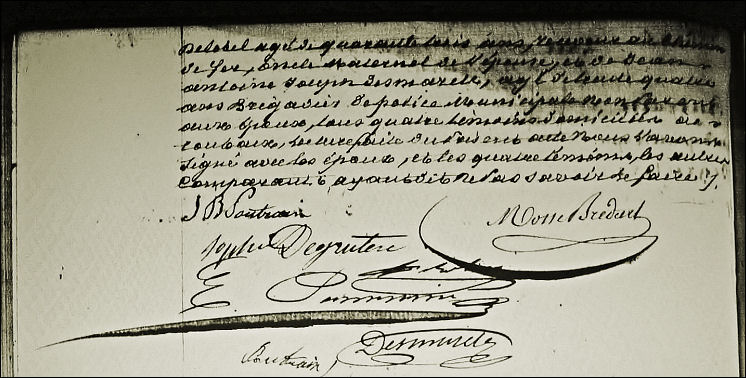 Delobel agé de quarante trois ans, Receveur au chemin
de fer, oncle maternel de l'épouse, et de Jean
Antoine Joseph Desmarets, agé de trente quatre
ans Brigadier de police Municipale non parent
aux époux, tous quatre témoins domiciliés à
Roubaix, lecture faite du présent acte Nous l'avons
signé avec les époux, et les quatre témoins, les autres
Comparants ayant dit ne pas savoir le faire /.
J B Soutrain
Mosse Bredart
Sophie Degrutere
E.
Desmarets